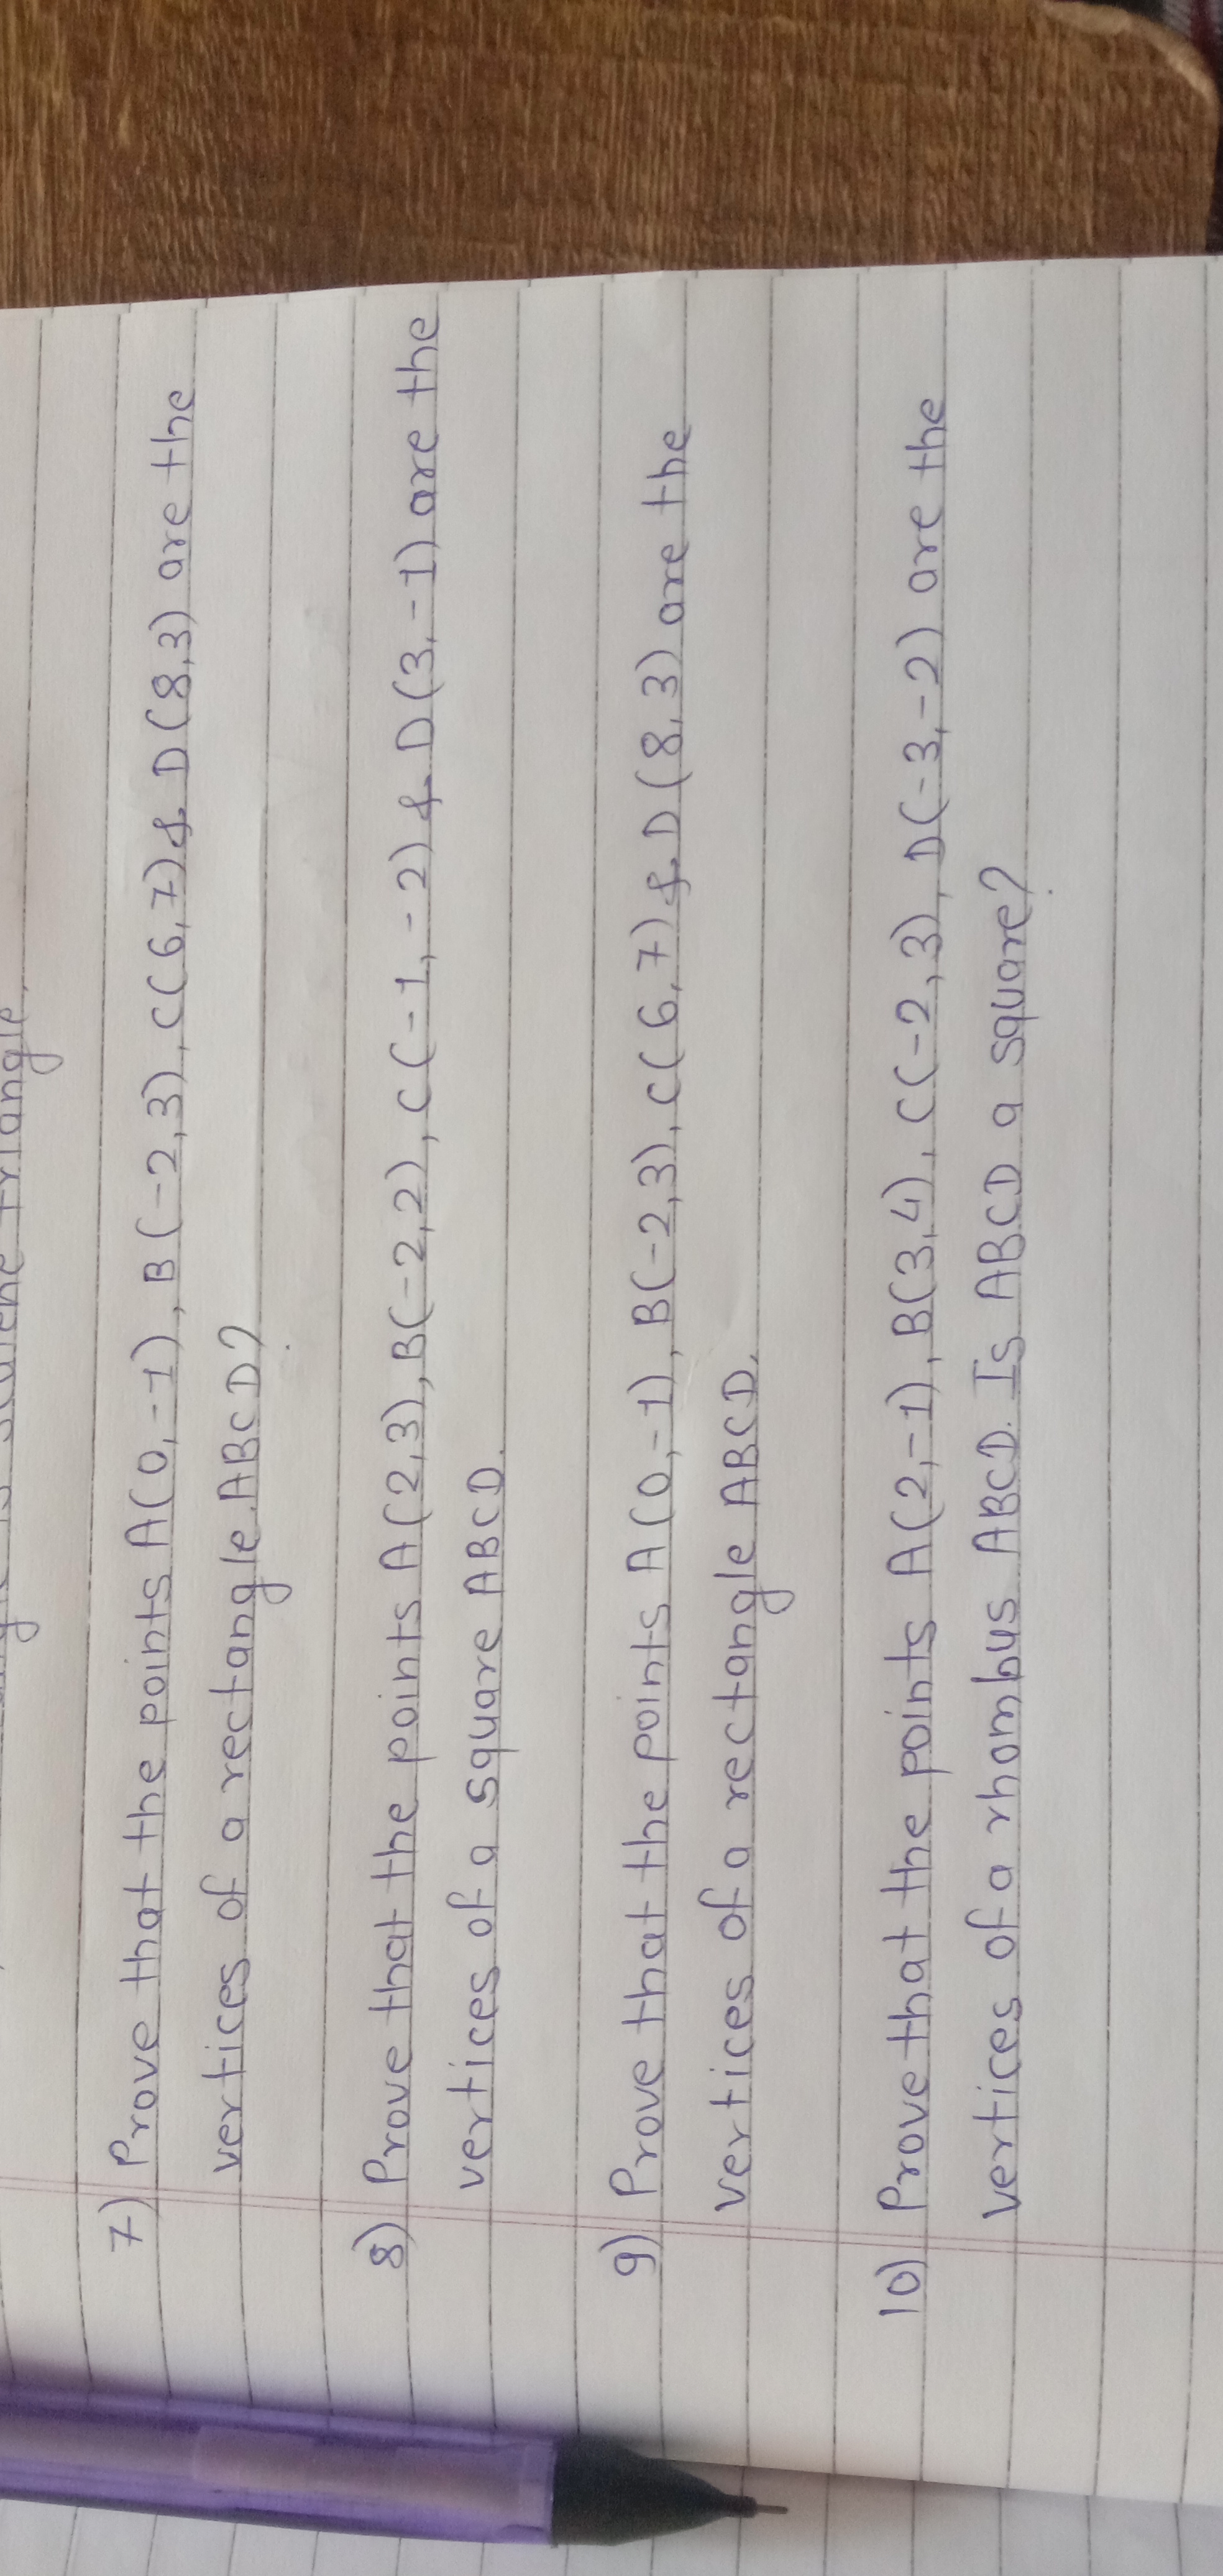 triangle.
7) Prove that the points A(0,-1), B(-2,3), C(6,7) & D(8,3) are the
vertices of a rectangle ABCD?
8) Prove that the points A(2,3), B(-2,2), C(-1,-2) & D(3,-1) are the
vertices of a square ABCD.
9) Prove that the points A(0,-1), B(-2,3), C(6,7) & D(8,3) are the
vertices of a rectangle ABCD.
10) Prove that the points A(2,-1), B(3,4), C(-2,3), D(-3,-2) are the
vertices of a rhombus ABCD. Is ABCD a square?